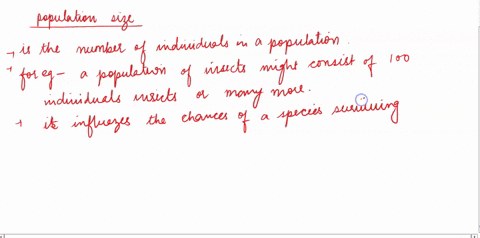 population size
→ is the number of individuals in a population.
→ for eg - a population of insects might consist of 100
individuals insects or many more.
→ its influezes the chances of a species surviuing